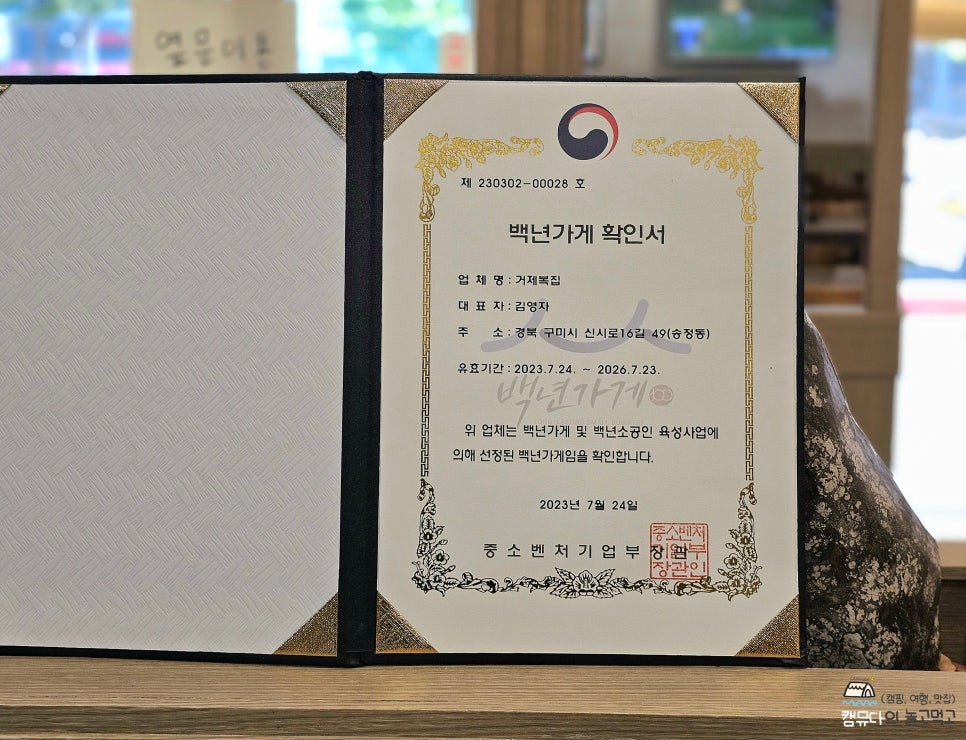 열무비빔
제 230302-00028 호
백년가게 확인서
업 체 명 : 거제복집
대 표 자 : 김영자
주 소 : 경북 구미시 신시로16길 49(송정동)
유효기간 : 2023.7.24. ~ 2026.7.23.
백년가게
위 업체는 백년가게 및 백년소공인 육성사업에
의해 선정된 백년가게임을 확인합니다.
2023년 7월 24일
중소벤처기업부장관
중소벤처
기업부
장관인
(캠핑, 여행, 맛집)
캠뮤다의 놀고먹고